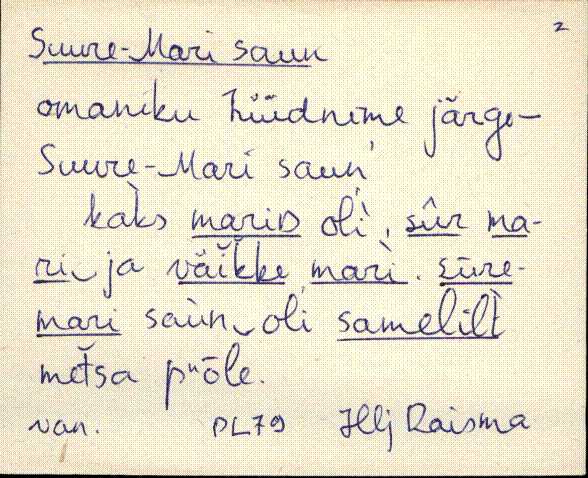 2
Suure-Mari saun
omaniku hüüdnime järgi—
Suure-Mari saun,
kàks mariD oli, sûr ma-
ri, ja väikke mari. sūre-
mari saùn, oli samelilt
metsa pᵘōle.
van. PL79 Illj Raisma